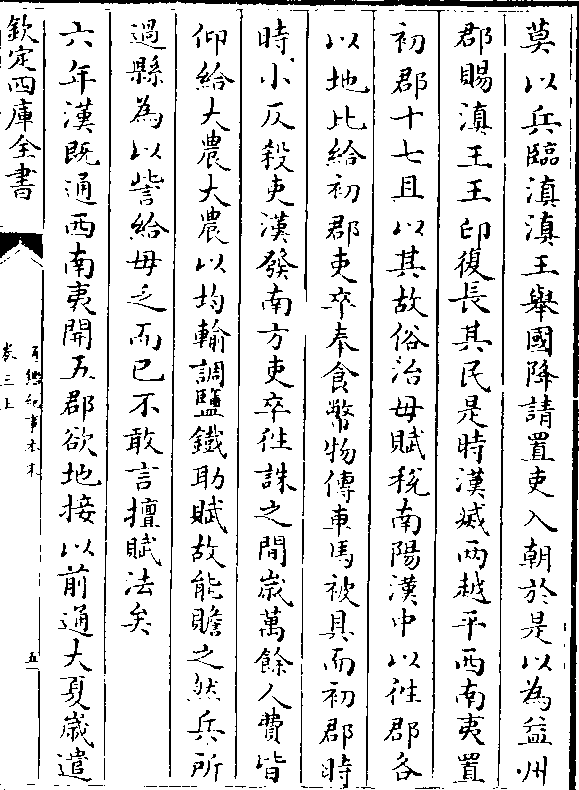 莫以兵臨滇滇王舉國降請置吏入朝於是以為益州
郡賜滇王王印復長其民是時漢滅兩越平西南夷置
初郡十七且以其故俗治毋賦稅南陽漢中以往郡各
以地比給初郡吏卒奉食幣物傳車馬被具而初郡時
時小反殺吏漢發南方吏卒往誅之間歲萬餘人費皆
仰給大農大農以均輸調鹽鐵助賦故能贍之然兵所
過縣為以訾給毋乏而已不敢言擅賦法矣
六年漢既通西南夷開五郡欲地接以前通大夏歲遣
欽定四庫全書
通鑑紀事本末
卷三上
五